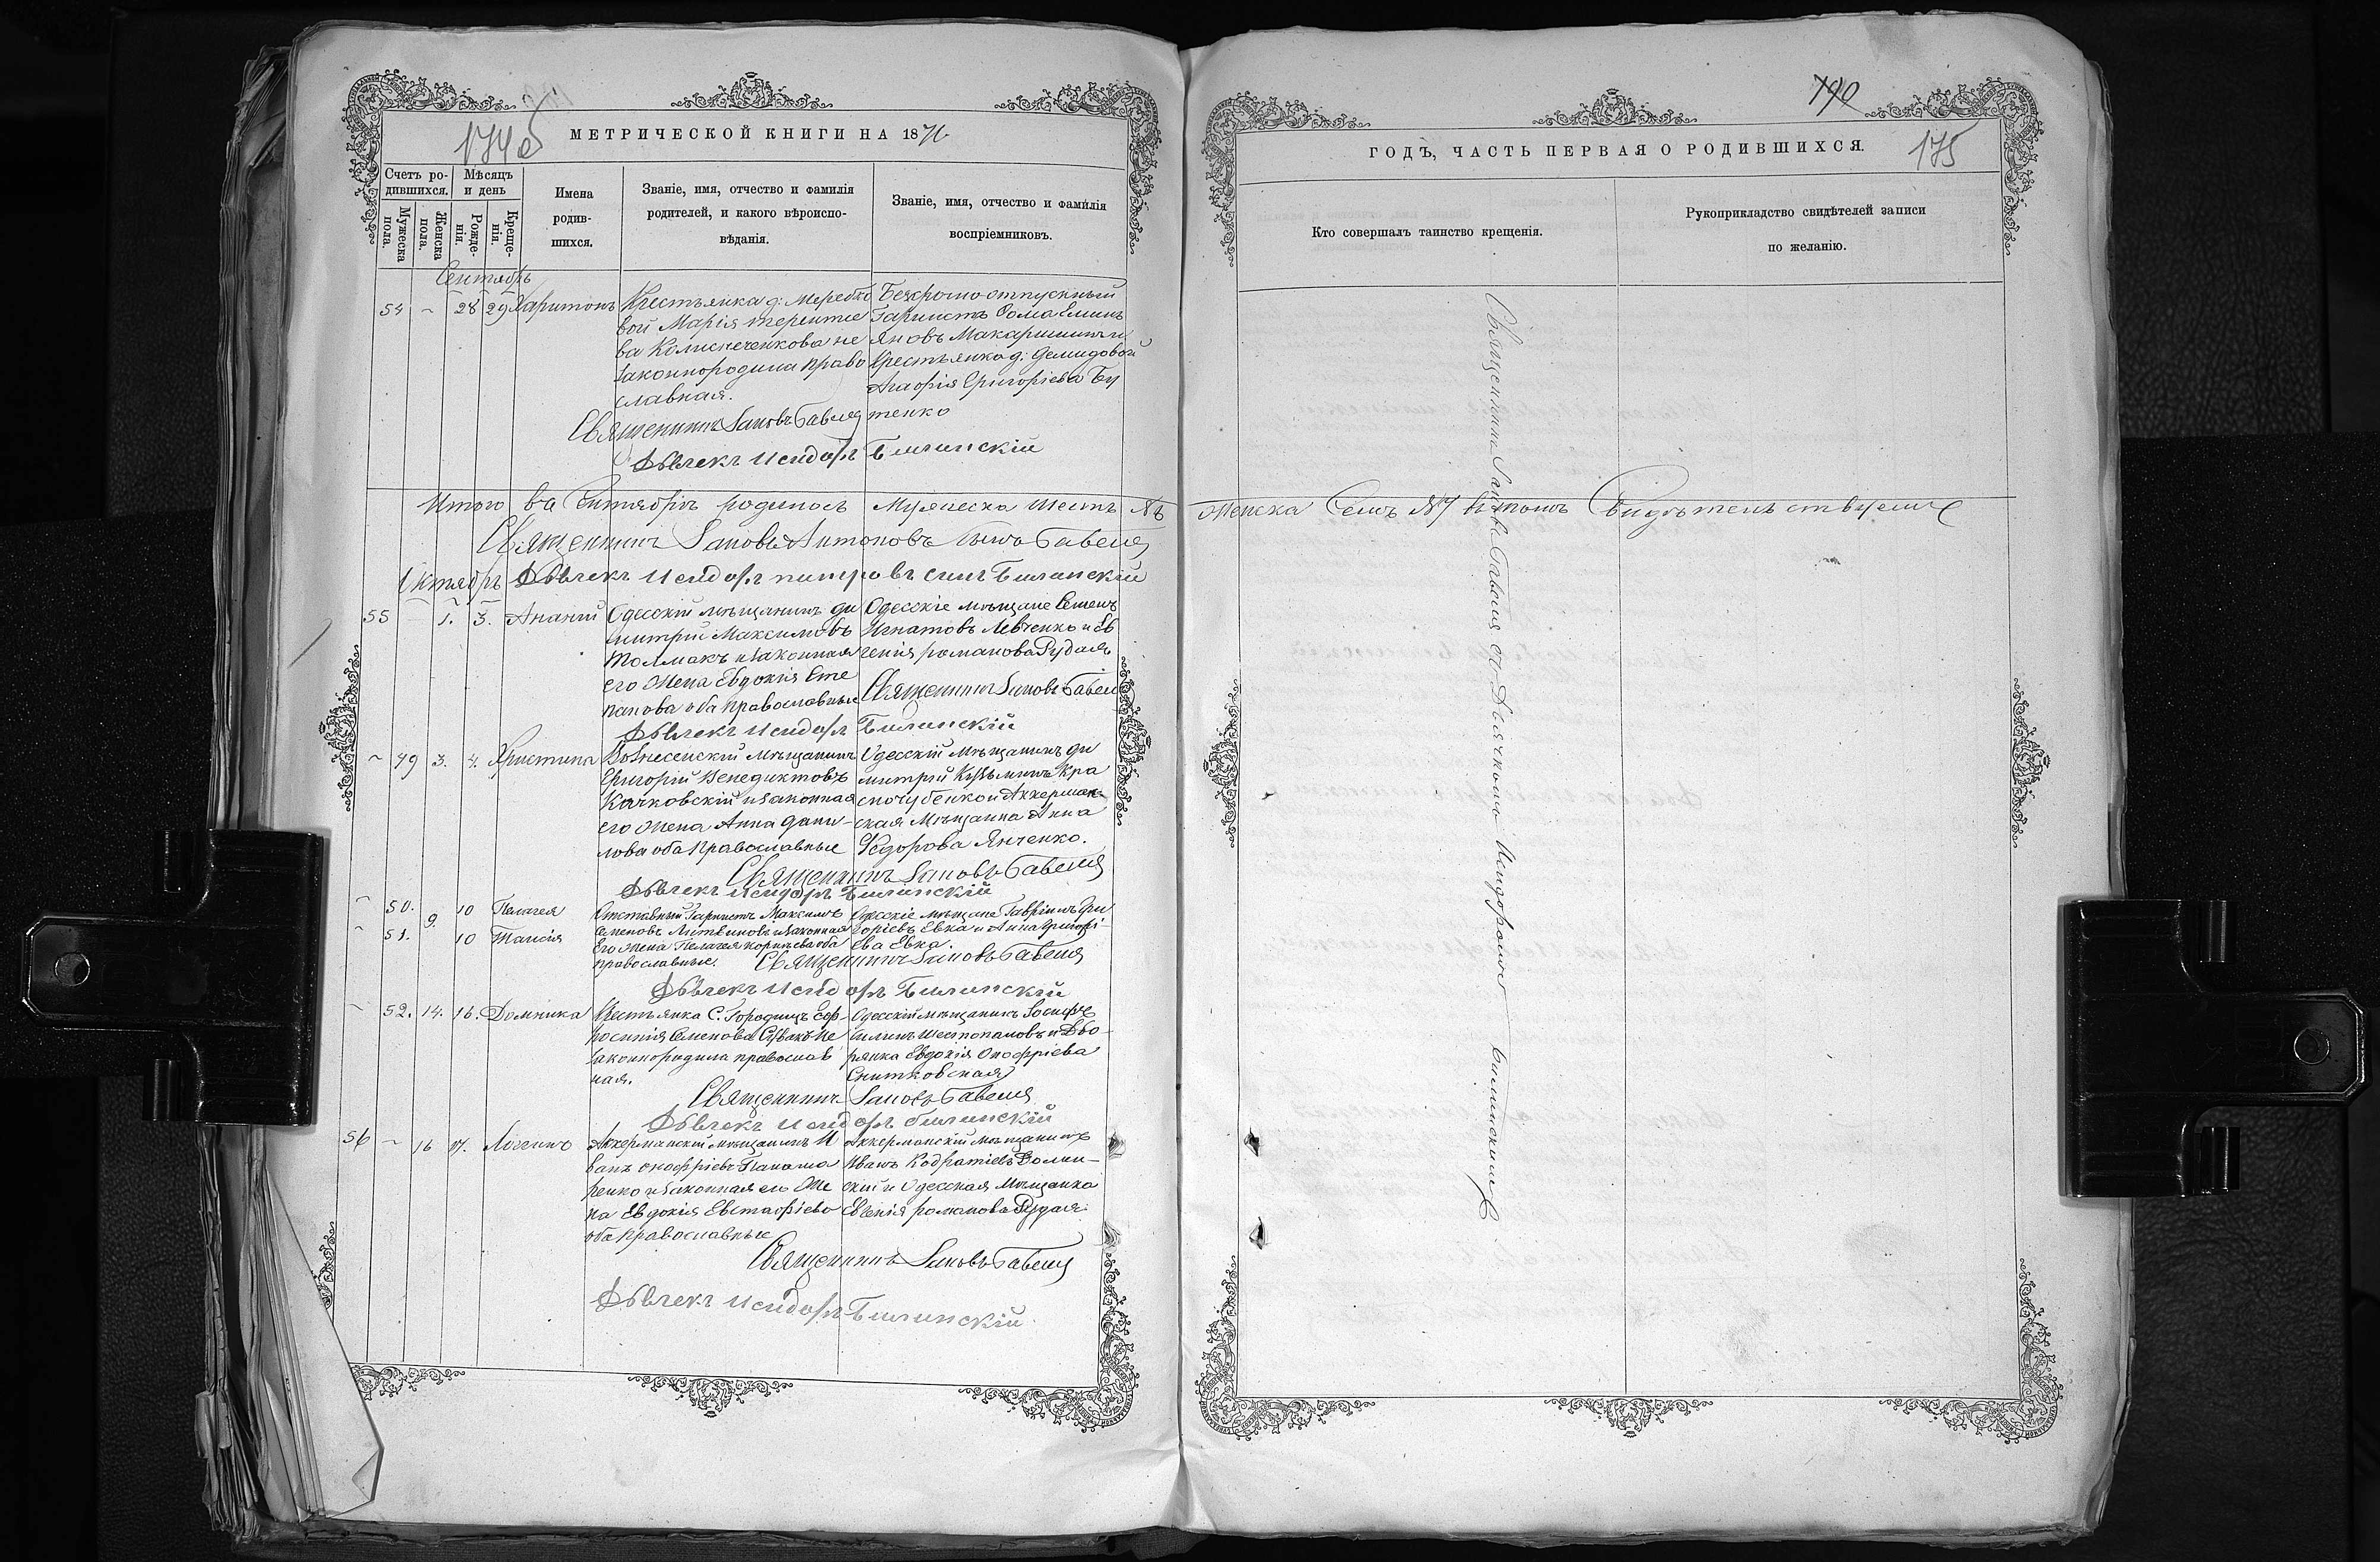 174об
МЕТРИЧЕСКОЙ КНИГИ НА 1871
Счетъ ро-
дившихся.
Мѣсяцъ
и день
Мужеска
пола.
Женска
пола.
Рожде-
нія.
Креще-
нія.
Имена
родив-
шихся.
Званіе, имя, отчество и фамилія
родителей, и какого вѣроиспо-
вѣданія.
Званіе, имя, отчество и фамилія
воспріемниковъ.
Сентябрь
54 ~ 28 29 Харитонъ
Крестьянка д:
вой Марія Терентие
ва не
законнородила право
славная.
Безсрочноотпускный
Ѳома Емил
яновъ и
Крестьянка д: Демидовой
Агафія Григоріева Бу
тенко
Священникъ Іаковъ Гавеля
Дьячекъ Исидоръ Билинскій
Итого въ Сентябрѣ родилось Мужеска шесть №6
Священникъ Іаковъ Антоновъ сынъ Гавеля
Октябрь Дьячекъ Исидоръ петровъ синъ Билинскій
55 1. 3. Ананій
Одесскій мѣщанинъ Ди
митрій Максимовъ
Толмакъ и законная
его жена Евдокія Сте
панова оба православные
Одесскіе мѣщане Семенъ
Игнатовъ Левченко и Ев
генія романова Рудая
Священникъ Іаковъ Гавеля
Дьячекъ Исидоръ Билинскій
~ 49 3. 4. Христина
Вознесенскій мѣщанинъ
Григорій Венедиктовъ
Качковскій и законная
его жена Анна Дани-
лова оба православные
Одесскій мѣщанинъ Ди
митрій Кузьминъ Кра
сночубенко и Аккерман-
ская мѣщанка Анна
Ѳедорова Янченко.
Священникъ Іаковъ Гавеля
Дьячекъ Исидоръ Билинскій
~ 50. 9. 10 Пелагея
~ 51. 10 Таисія
Отставный Максимъ
Семеновъ Литвиновъ и законная
Его жена Пелагея оба
православные.
Одесскіе мѣщане Гавріилъ Гри
горіевъ Евка и Анна Григорі-
ева Евка.
Священникъ Іаковъ Гавеля
Дьячекъ Исидоръ Билинскій
~ 52. 14. 16. Домника
Крестьянка С. Городищъ Еф-
росинія Семенова не
законнородила православ
ная.
Одесскій мѣщанинъ Іосифъ
Шестопаловъ и Дво-
рянка Евдокія Онофріева
Снитковская
Священникъ Іаковъ Гавеля
Дьячекъ Исидоръ Билинскій
56 ~ 16 17. Логгинъ
Аккерманскій мѣщанинъ И
ванъ онофріевъ Панама
ренко и законная его Же
на Евдокія Евстафіева
оба православные
Аккерманскій мѣщанинъ
Иванъ Волин-
скій и Одесская мѣщанка
Евгенія романова Рудая.
Священникъ Іаковъ Гавеля
Дьячекъ Исидоръ Билинскій
790
175
ГОДЪ, ЧАСТЬ ПЕРВАЯ О РОДИВШИХСЯ.
Кто совершалъ таинство крещенія.
Рукоприкладство свидѣтелей записи
по желанію.
Женска семь №7 въ томъ Свидѣтельствуемъ
Священникъ Іаковъ Гавеля съ Дьячкомъ Исидоромъ Билинскимъ